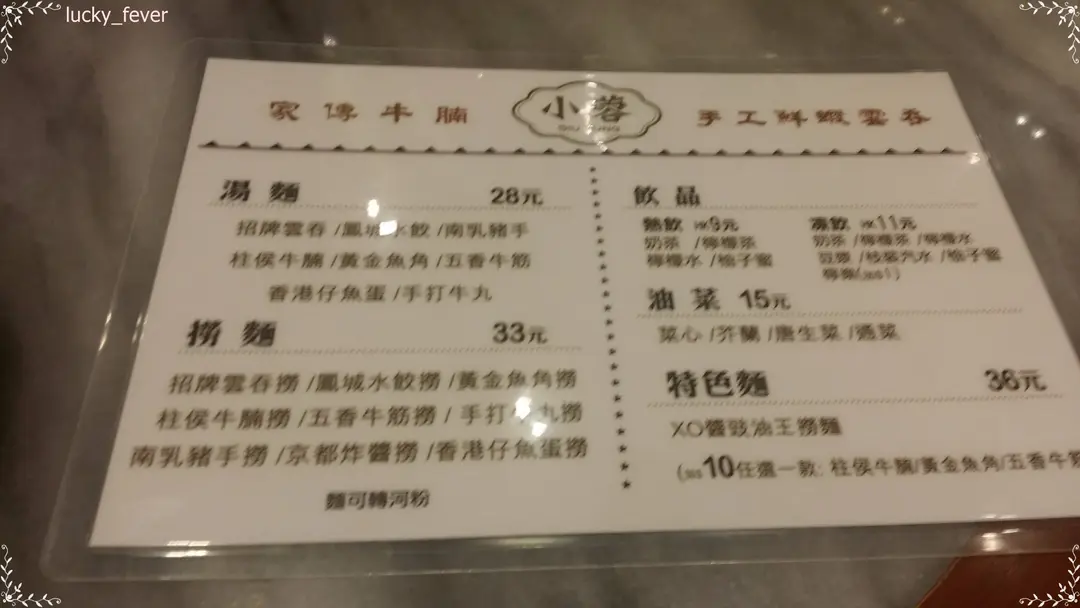 lucky_fever
家傳牛腩
小蓉
手工鮮蝦雲吞
湯麵 28元
招牌雲吞 /鳳城水餃 /南乳豬手
柱侯牛腩 /黃金魚角 /五香牛筋
香港仔魚蛋 /手打牛丸
撈麵 33元
招牌雲吞撈 /鳳城水餃撈 /黃金魚角撈
柱侯牛腩撈 /五香牛筋撈 / 手打牛丸撈
南乳豬手撈 /京都炸醬撈 /香港仔魚蛋撈
麵可轉河粉
飲品
熱飲 HK9元
奶茶 /檸檬茶
檸檬水 /柚子蜜
凍飲 HK11元
奶茶 /檸檬茶 /檸檬水
豆漿 /枝裝汽水 /柚子蜜
檸樂
油菜 15元
菜心 /芥蘭 /唐生菜 /通菜
特色麵 36元
XO醬豉油王撈麵
10任選一款: 柱侯牛腩/黃金魚角/五香牛筋